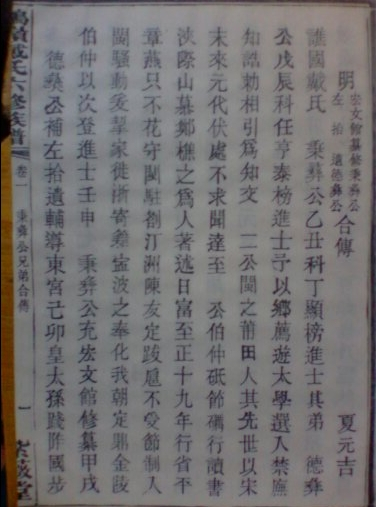 明
宏文館纂修秉彝公
左拾遺德彝公
合傳 夏元吉
護國戴氏 秉彝公乙丑科丁顯榜進士其弟 德彝
公戊辰科任亨泰榜進士予以鄉薦遊太學選入禁廡
知誥勅相引爲知交 二公閩之莆田人其先世以宋
末來元代伏處不求聞達至 公伯仲砥節礪行讀書
浹際山慕鄭樵之爲人著述日富至正十九年行省平
章燕只不花守閩駐劄汀洲陳友定跋扈不受節制入
閩騷動爰挈家徙浙寄寧波之奉化我朝定鼎金陵
伯仲以次登進士壬申 秉彝公充宏文館修纂甲戌
德彝公補左拾遺輔導東宮己卯皇太孫踐阼國步
戴氏六修族譜
卷一
秉彝公兄弟合傳
一
紫薇堂